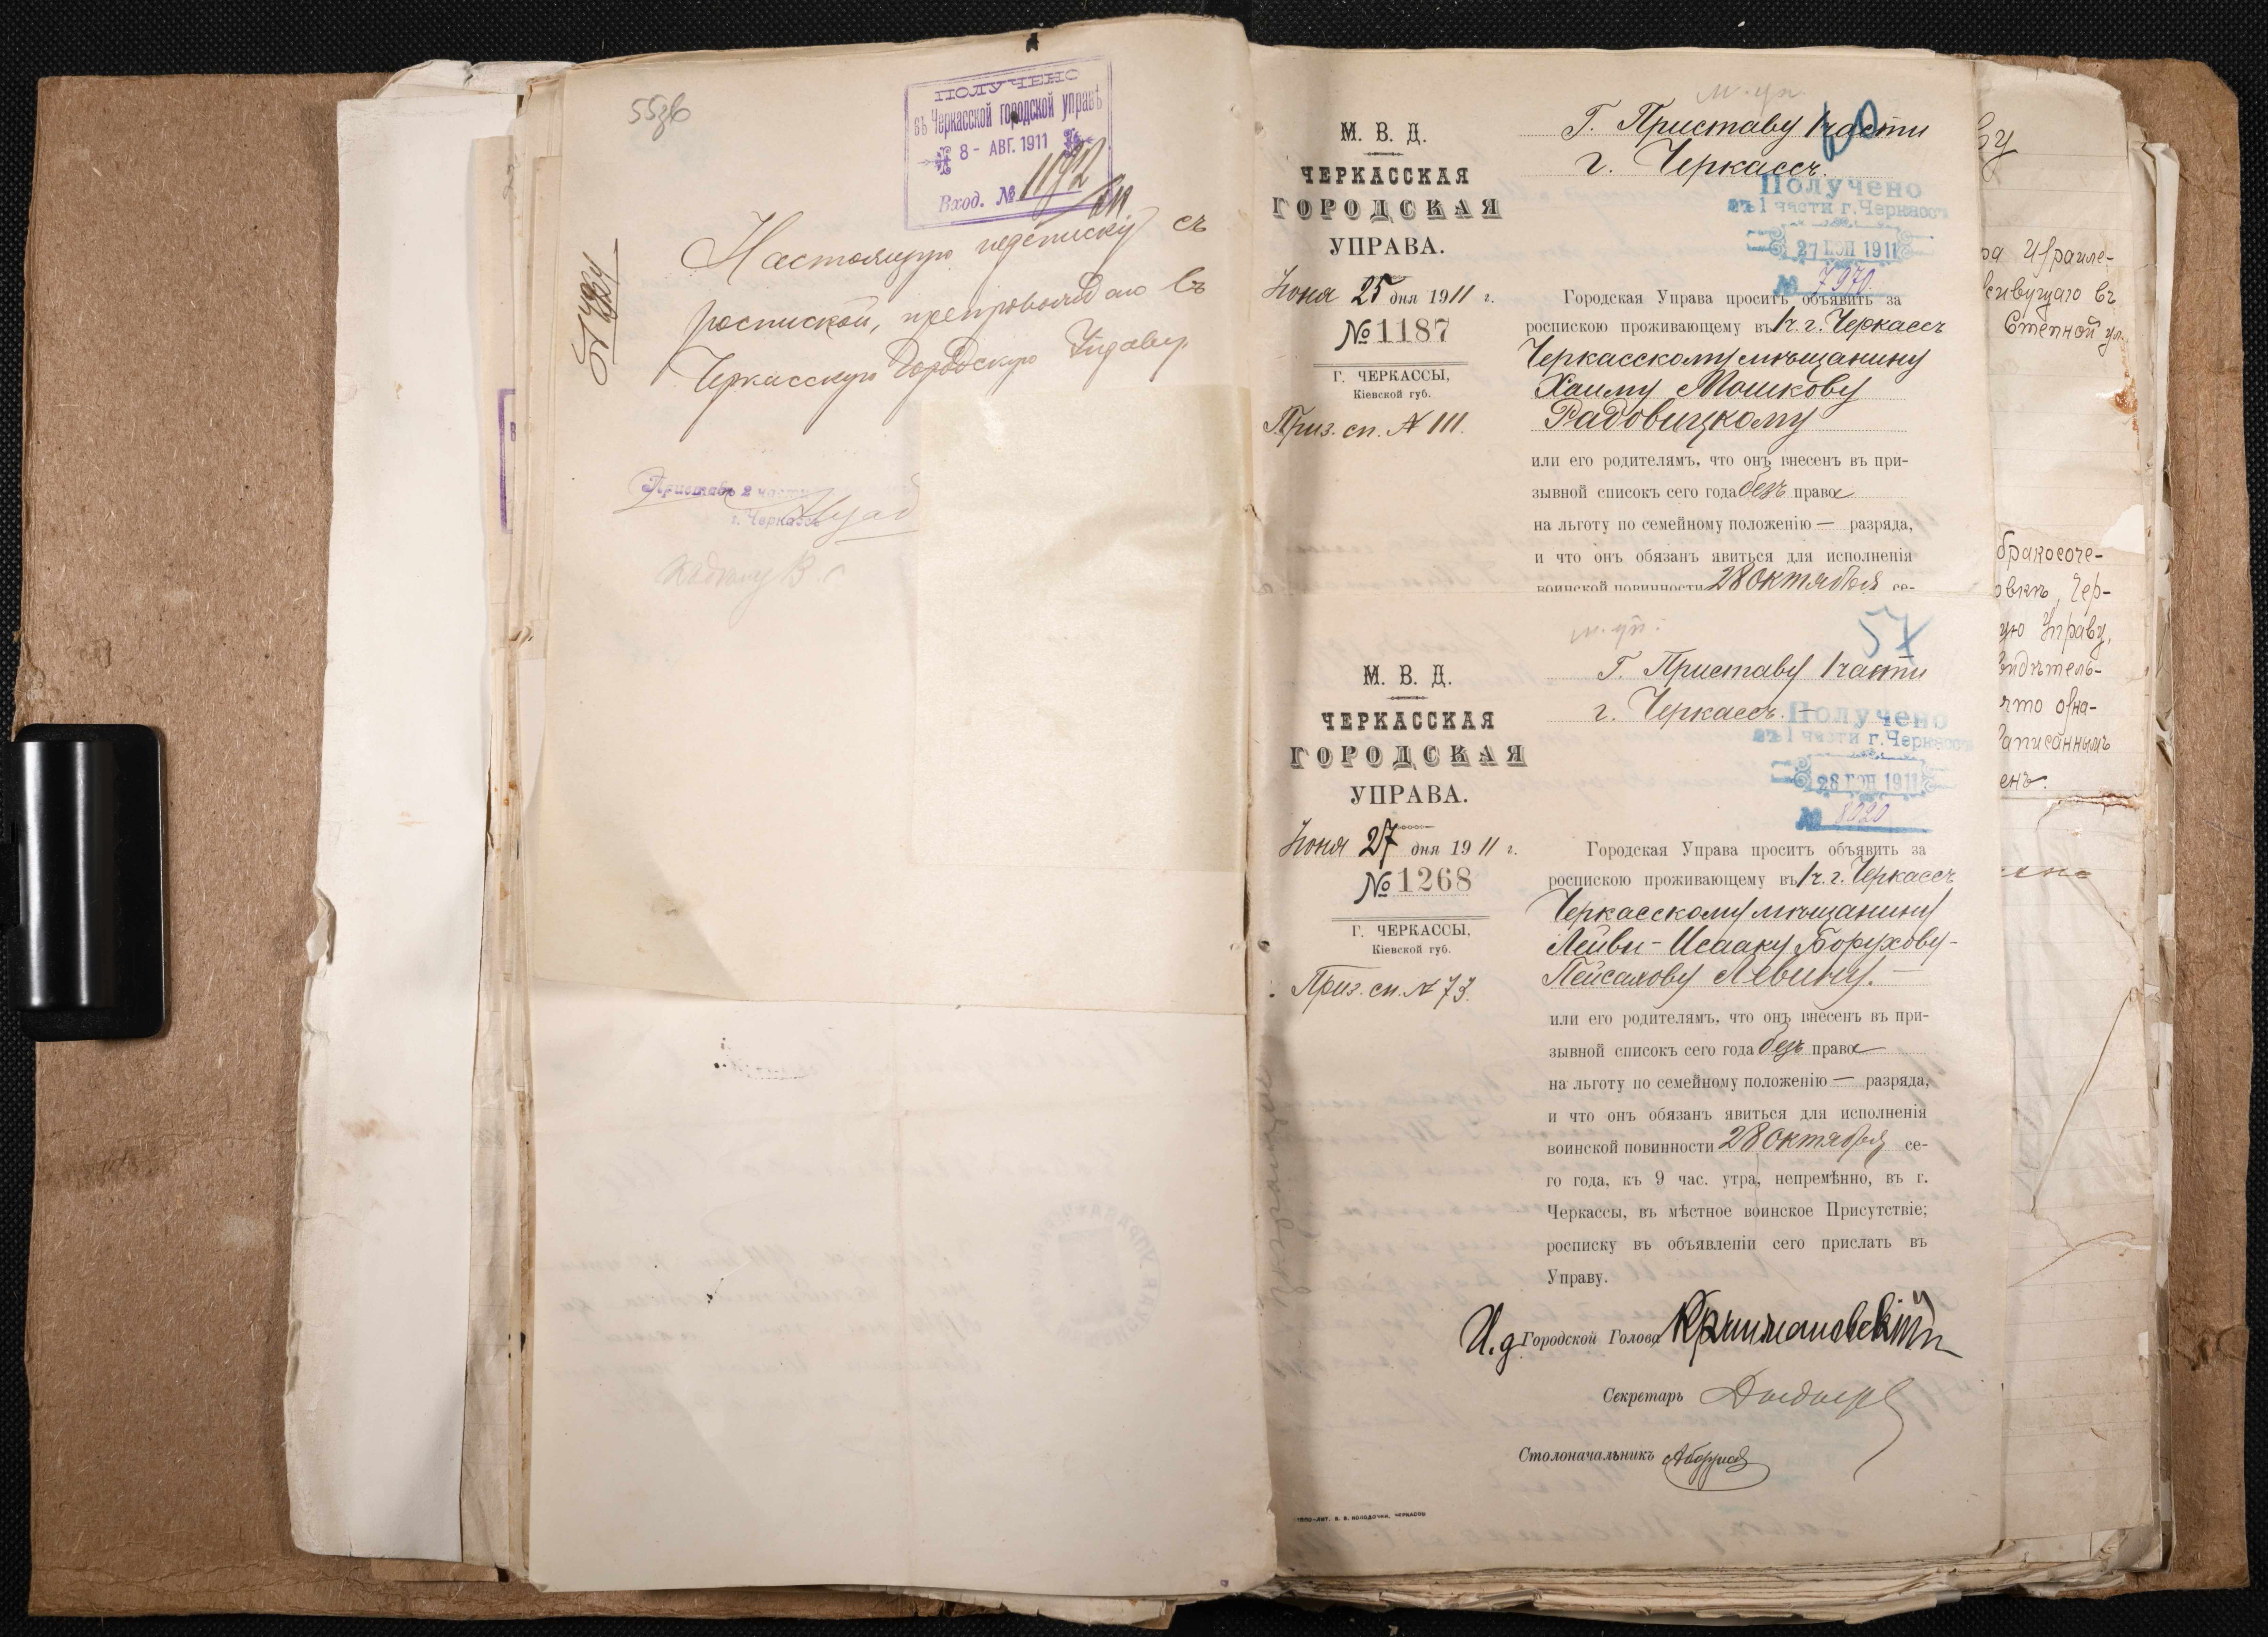 55зв
ПОЛУЧЕНО
въ Черкасской городской управѣ
8 - АВГ. 1911
Вход. № 1192
Настоящую подписку съ
роспиской, препровождаю въ
Черкасскую Городскую Управу.
Приставъ 2 части
г. Черкассъ
м. уп.
М. В. Д.
ЧЕРКАССКАЯ
ГОРОДСКАЯ
УПРАВА.
Іюня 25 дня 1911 г.
№ 1187
Г. ЧЕРКАССЫ,
Кіевской губ.
Приз. сп. № 111.
Г. Приставу 1 части
г. Черкассъ.
Получено
въ 1 части г. Черкассъ
27 ІЮН 1911
№ 7970
Городская Управа проситъ объявить за
роспискою проживающему въ 1 ч. г. Черкассъ
Черкасскому мѣщанину
Хаиму Мошкову
Радовицкому
или его родителямъ, что онъ внесенъ въ при-
зывной списокъ сего года безъ права
на льготу по семейному положенію — разряда,
и что онъ обязанъ явиться для исполненія
воинской повинности 28 октября се-
м. уп.
57
М. В. Д.
ЧЕРКАССКАЯ
ГОРОДСКАЯ
УПРАВА.
Іюня 27 дня 1911 г.
№ 1268
Г. ЧЕРКАССЫ,
Кіевской губ.
Приз. сп. № 73.
Г. Приставу 1 части
г. Черкассъ. —
Получено
въ 1 части г. Черкассъ
28 ІЮН 1911
№ 8020
Городская Управа проситъ объявить за
роспискою проживающему въ 1 ч. г. Черкассъ
Черкасскому мѣщанину
Лейви-Исааку Борухову-
Пейсахову Левину. —
или его родителямъ, что онъ внесенъ въ при-
зывной списокъ сего года безъ права
на льготу по семейному положенію — разряда,
и что онъ обязанъ явиться для исполненія
воинской повинности 28 октября се-
го года, къ 9 час. утра, непремѣнно, въ г.
Черкассы, въ мѣстное воинское Присутствіе;
росписку въ объявленіи сего прислать въ
Управу.
И. д. Городской Голова
Секретарь
Столоначальникъ
ТИПО-ЛИТ. В. В. КОЛОДОЧКИ, ЧЕРКАССЫ
ра Израиле-
живущаго въ
Степной ул.
бракосоче-
овкѣ, Чер-
ую Управу,
видѣтель-
что озна-
записаннымъ
енъ.